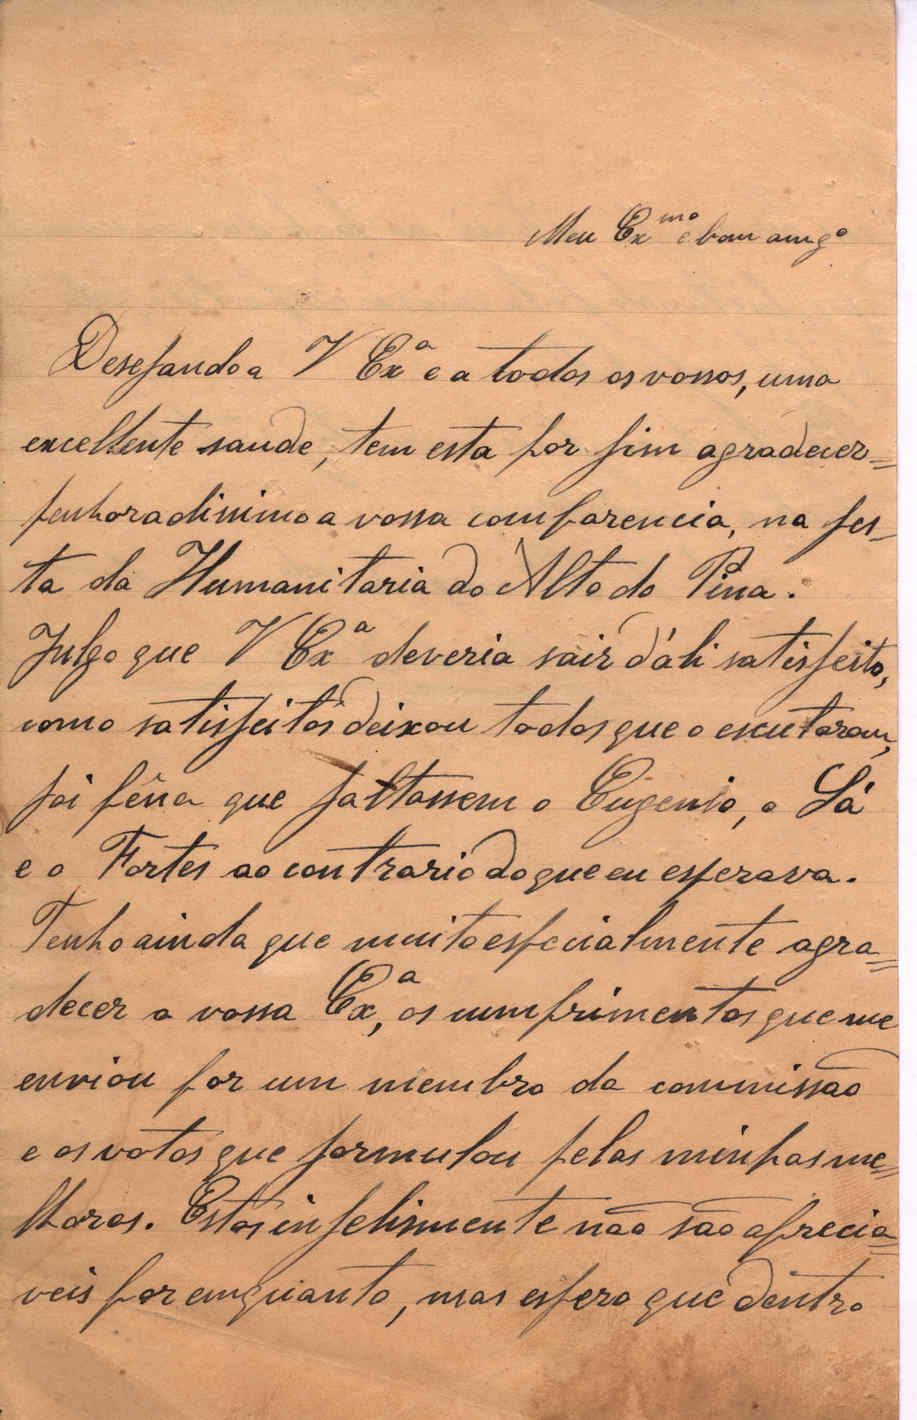 Meu Ex.mo e bom amg.o
Desejando a V Ex.a e a todos os vossos, uma
excellente saude, tem esta por fim agradecer=
penhoradissimo a vossa comparencia, na fes_
ta da Humanitaria do Alto do Pina.
Julgo que V Ex.a deveria sair d'áli satisfeito,
como satisfeitos deixou todos que o escutaram,
foi pêna que faltassem o Eugenio, o Sá
e o Fortes ao contrario do que eu esperava.
Tenho ainda que muito especialmente agra=
decer a vossa Ex.a, os cumprimentos que me
enviou por um membro da commissão
e os votos que formulou pelas minhas me=
lhoras. Estas infelismente não são aprecia=
veis por emquanto, mas espero que dentro